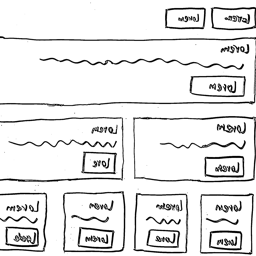 Lorem Lorem
Lorem
Lorem
Lorem Lorem
Lorem Lore
Lorem Lorem Lorem Lorem
Lorem Lore Lorem